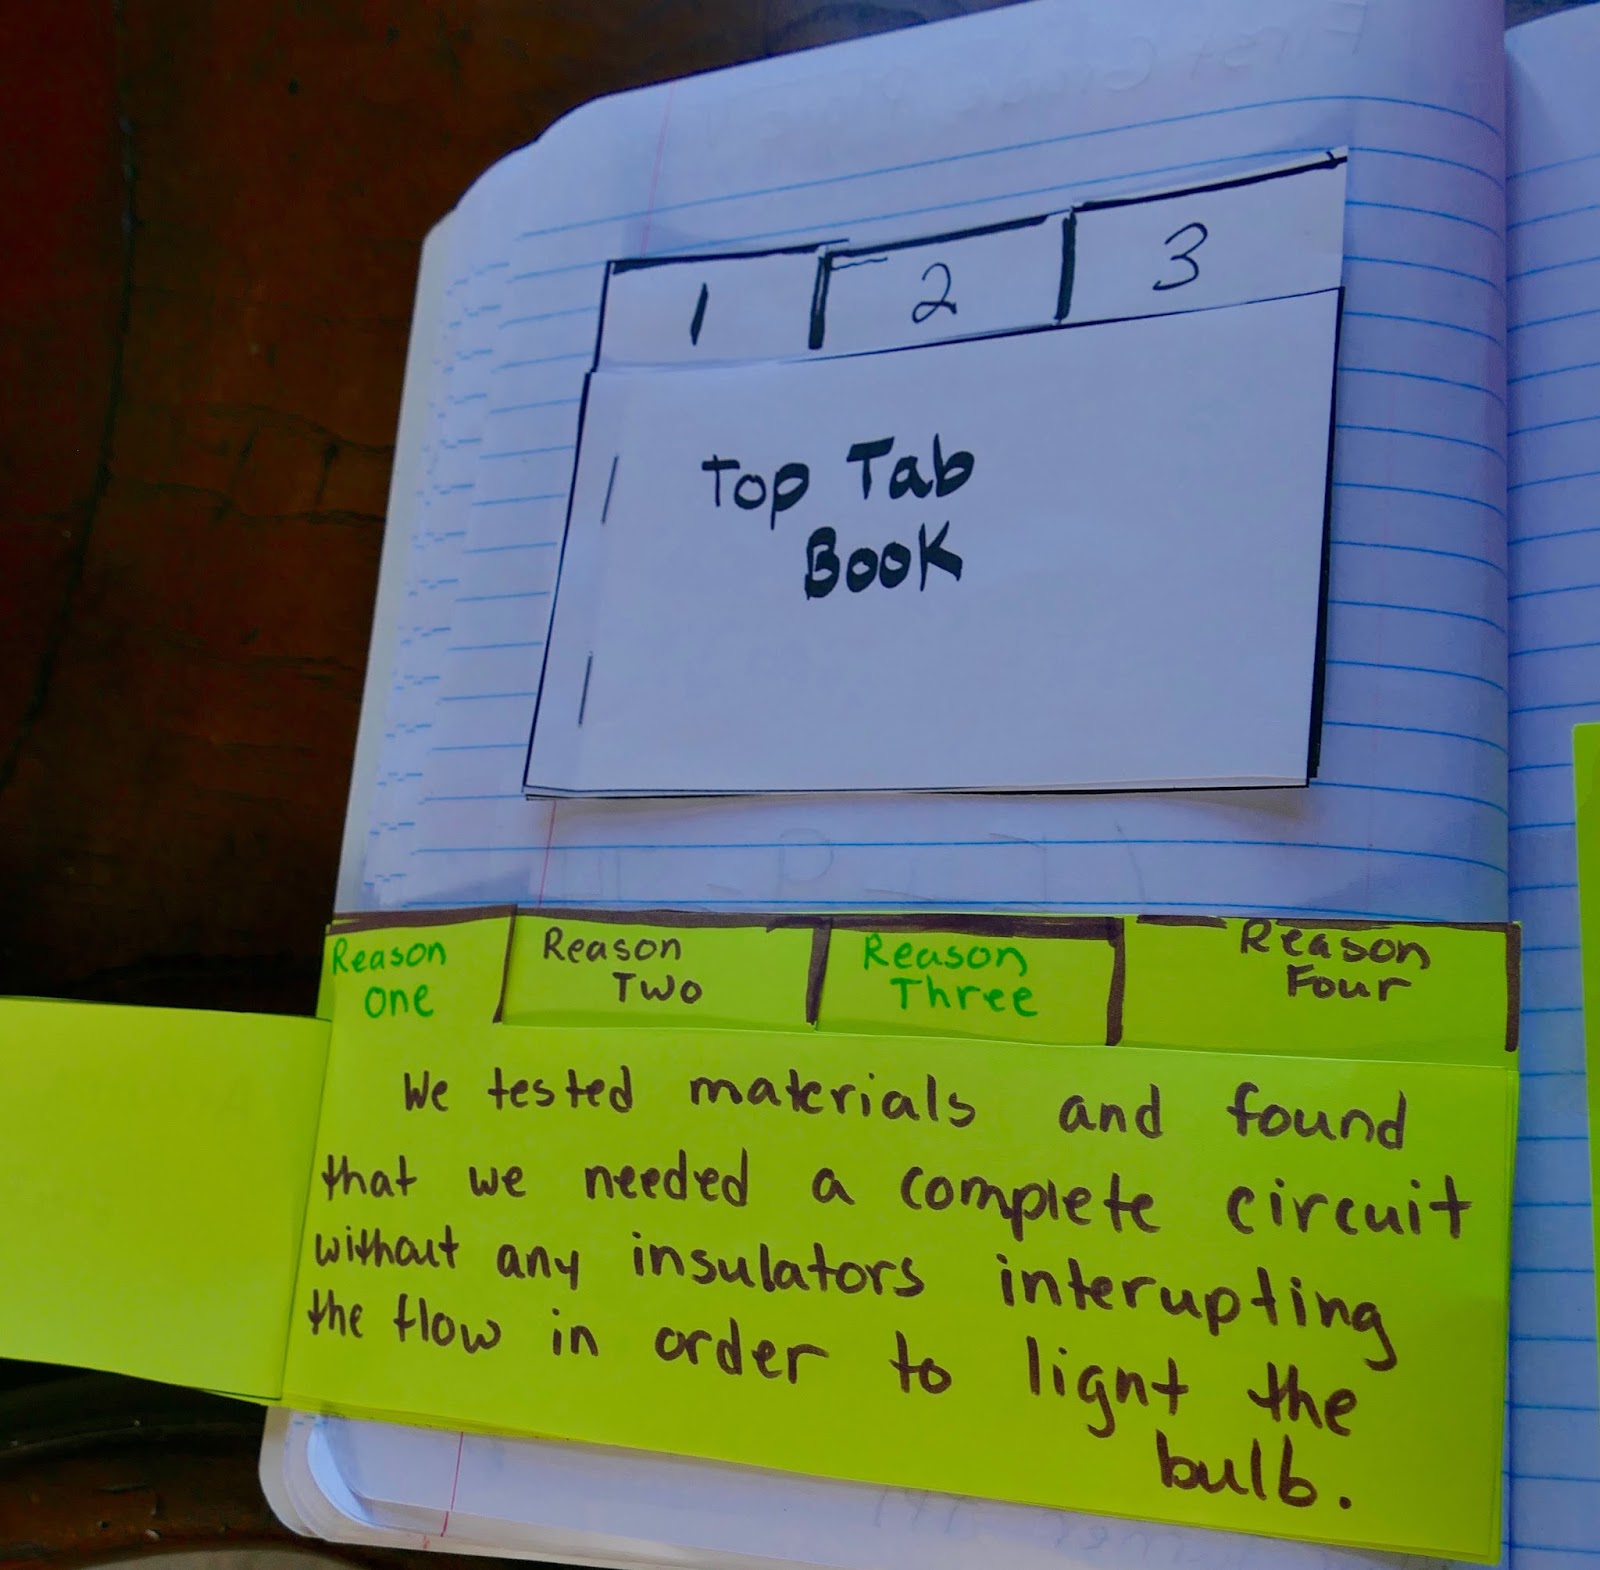 1 2 3
Top Tab
Book
Reason
One
Reason
Two
Reason
Three
Reason
Four
We tested materials and found
that we needed a complete circuit
without any insulators interupting
the flow in order to lignt the
bulb.